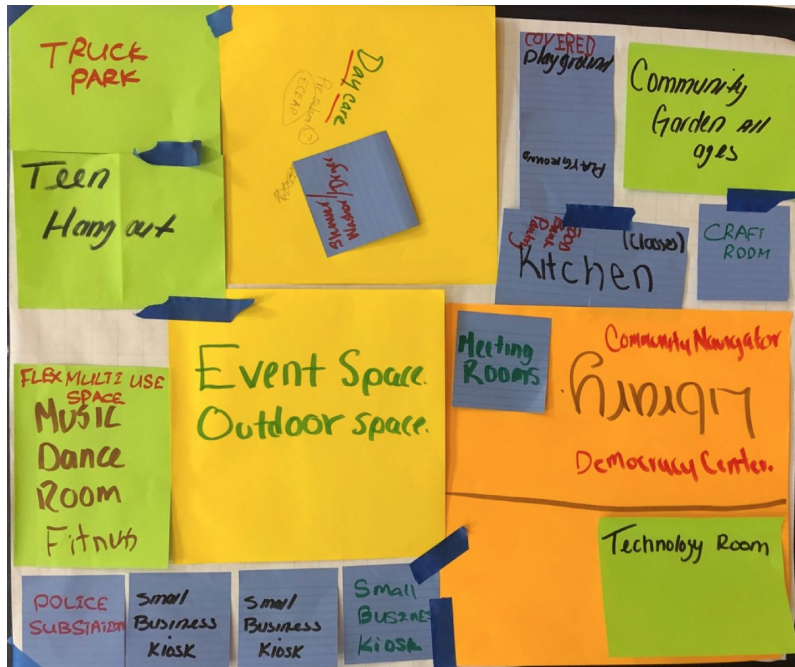 TRUCK
PARK
Teen
Hang out
Day care
Preschool
Shower/
COVERED
Playground
PLAYGROUND
Community
Garden All
ages
Food
Bank
Pantry
(Classes)
Kitchen
CRAFT
ROOM
FLEX MULTI USE
SPACE
MUSIC
Dance
ROOM
Event Space.
Outdoor space.
Meeting
ROOMS
Community Navigator
Library
Democracy Center.
Technology Room
POLICE
SUBSTATION
Small
Business
Kiosk
Small
Business
Kiosk
Small
Business
Kiosk